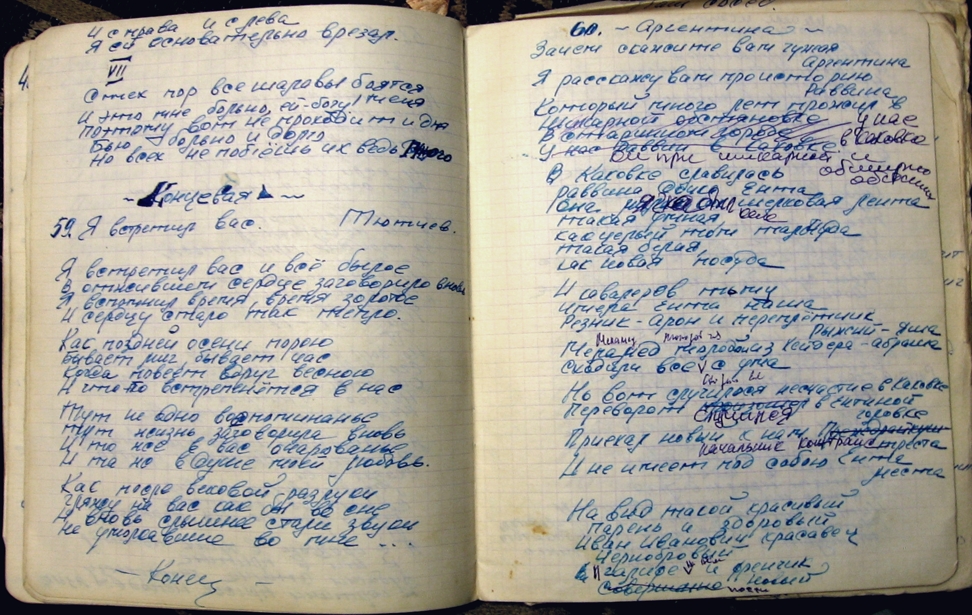 И справа и слева
Я ей основательно врезал.
VII
С тех пор все шалавы боятся меня
И это мне больно, ей-богу!
Поэтому вот не проходит и дня
Бью больно и долго
Но всех не побьёшь их ведь много
~ Концевая ~
59. Я встретил вас. Тютчев.
Я встретил вас и всё былое
В отжившем сердце заговорило вновь
Я вспомнил время, время золотое
И сердцу стало так тепло.
Как поздней осени порою
Бывает миг бывает час
Когда повеет вдруг весною
И что-то встрепенётся в нас
Тут не одно воспоминанье
Тут жизнь заговорила вновь
И то же в вас очарованье
И та же в душе моей любовь.
Как после вековой разлуки
Гляжу на вас как бы во сне
И вновь слышнее стали звуки
Не умолкавшие во мне ...
- Конец -
60. - Аргентина ~
Зачем скажите вам чужая
Аргентина
Я расскажу вам про историю
Раввина
Который много лет прожил в
Шикарной обстановке
В старинном городе
у нас
в Каховке
У нас раввин в Каховке
Он при шикарной и
обширной
обстановке
В Каховке славилась
раввина дочка Ента
Она шелковая лента
такая умная
как целый том талмуда
такая белая
как новая посуда
И кавалеров тьму
имела Ента наша
Резник - Арон и переплётчик
Рыжий - Яша
Меламед
Хейдера - Абраша
Сходили все с ума
Но вот случилося несчастье в Каховке
Переворот случился в Ентиной
головке
Приехал новый к нам
начальник Контрактреста
И не имеет под собою Ента
места
На вид такой красивый
парень и здоровый
Иван Иванович красавец
чернобровый
и галифе и френчик
совершенно новый
почти